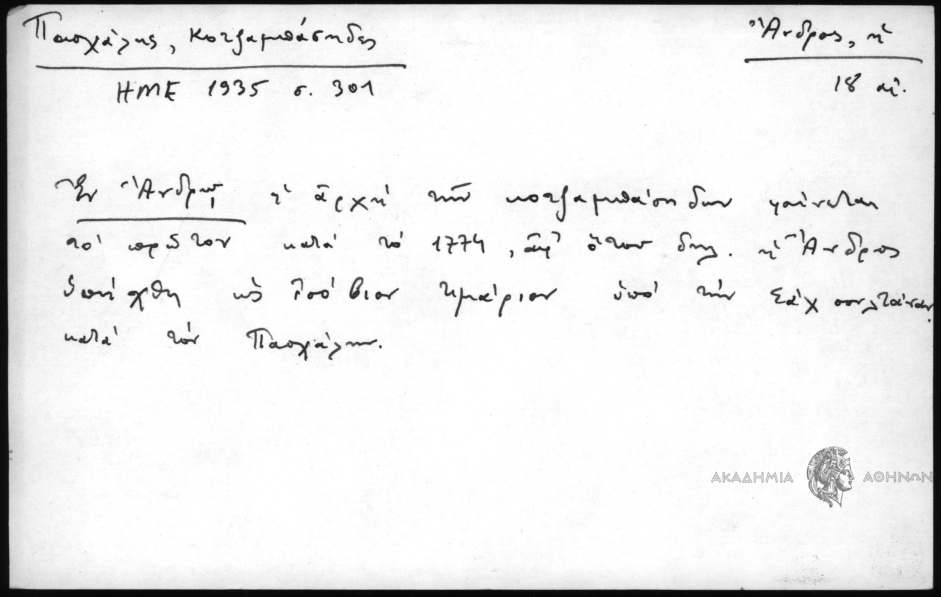 Πασχάλης, Κοτζαμπάσηδες
Ἄνδρος, ἡ
ΗΜΕ 1935 σ. 301
18 αἰ.
Ἐν Ἄνδρῳ, ἡ ἀρχὴ τῶν κοτζαμπάσηδων φαίνεται
τὸ πρῶτον κατὰ τὸ 1774, ἀφ' ὅτου δηλ. ἡ Ἄνδρος
ὑπήχθη ὡς ἰσόβιον τιμάριον ὑπὸ τὴν Σὰχ σουλτάναν
κατὰ τὸν Πασχάλην.
ΑΚΑΔΗΜΙΑ ΑΘΗΝΩΝ